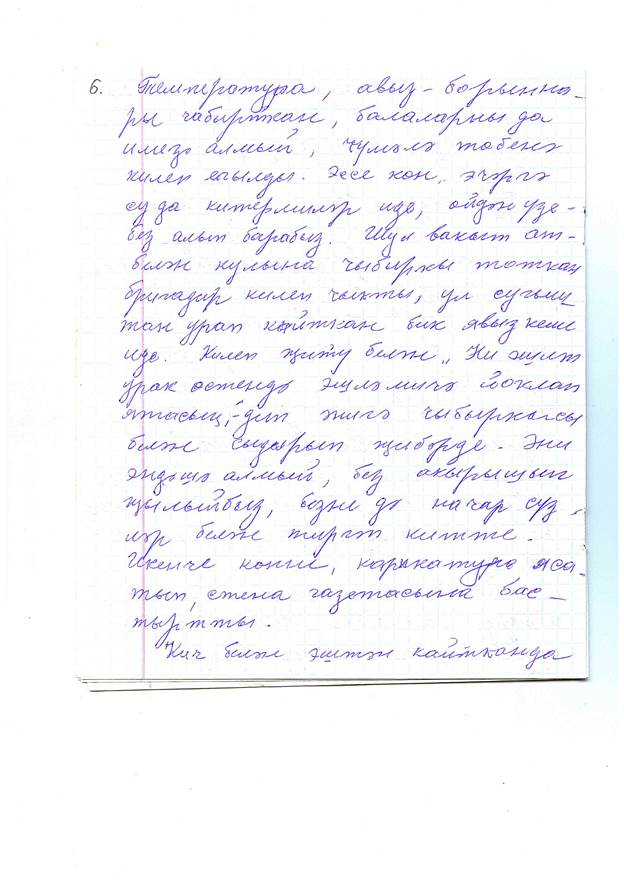 6. Температура, авыз-борынна-
ры чабырткан, балаларны да
имезә алмый, чүмәлә төбенә
килеп егылды. Эссе көн, эчәргә
су да китермиләр иде, өйдән үзе-
без алып барабыз. Шул вакыт ат-
белән кулына чыбыркы тоткан
бригадир килеп чыкты, ул сугыш-
тан урап кайткан бик явыз кеше
иде. Килеп җитү белән „Ни эшләп
урак өстендә эшләмичә йоклап
ятасың,-дип әнигә чыбыркысы
белән сыдырып җибәрде. Әни
эндәшә алмый, без акырышып
җылыйбыз, безне дә начар сүз-
ләр белән тиргәп китте.
Икенче көнне, карикатура яса-
тып, стена газетасына бас-
тыртты.
Кич белән эштән кайтканда